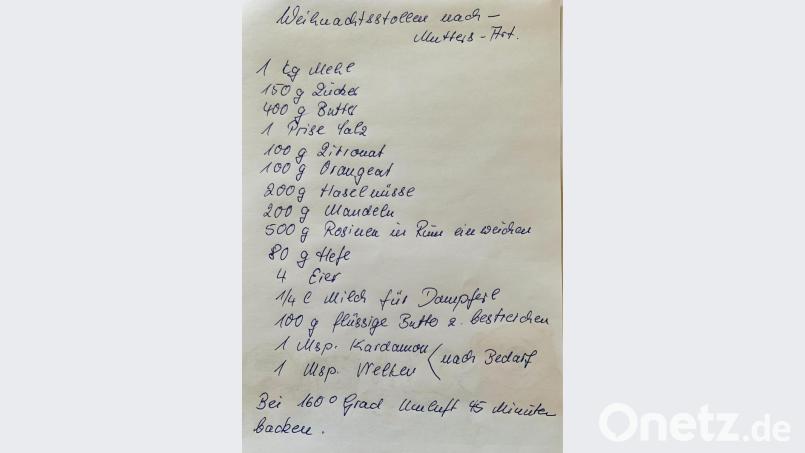 Weihnachtsstollen nach -
Mutters - Art.
1 kg Mehl
150 g Zucker
400 g Butter
1 Prise Salz
100 g Zitronat
100 g Orangeat
200 g Haselnüsse
200 g Mandeln
500 g Rosinen in Rum einweichen
80 g Hefe
4 Eier
1/4 l Milch für Dampferl
100 g flüssige Butter z. bestreichen
1 Msp. Kardamon
1 Msp. Nelken
nach Bedarf
Bei 160° Grad Umluft 45 Minuten
backen.
Onetz.de